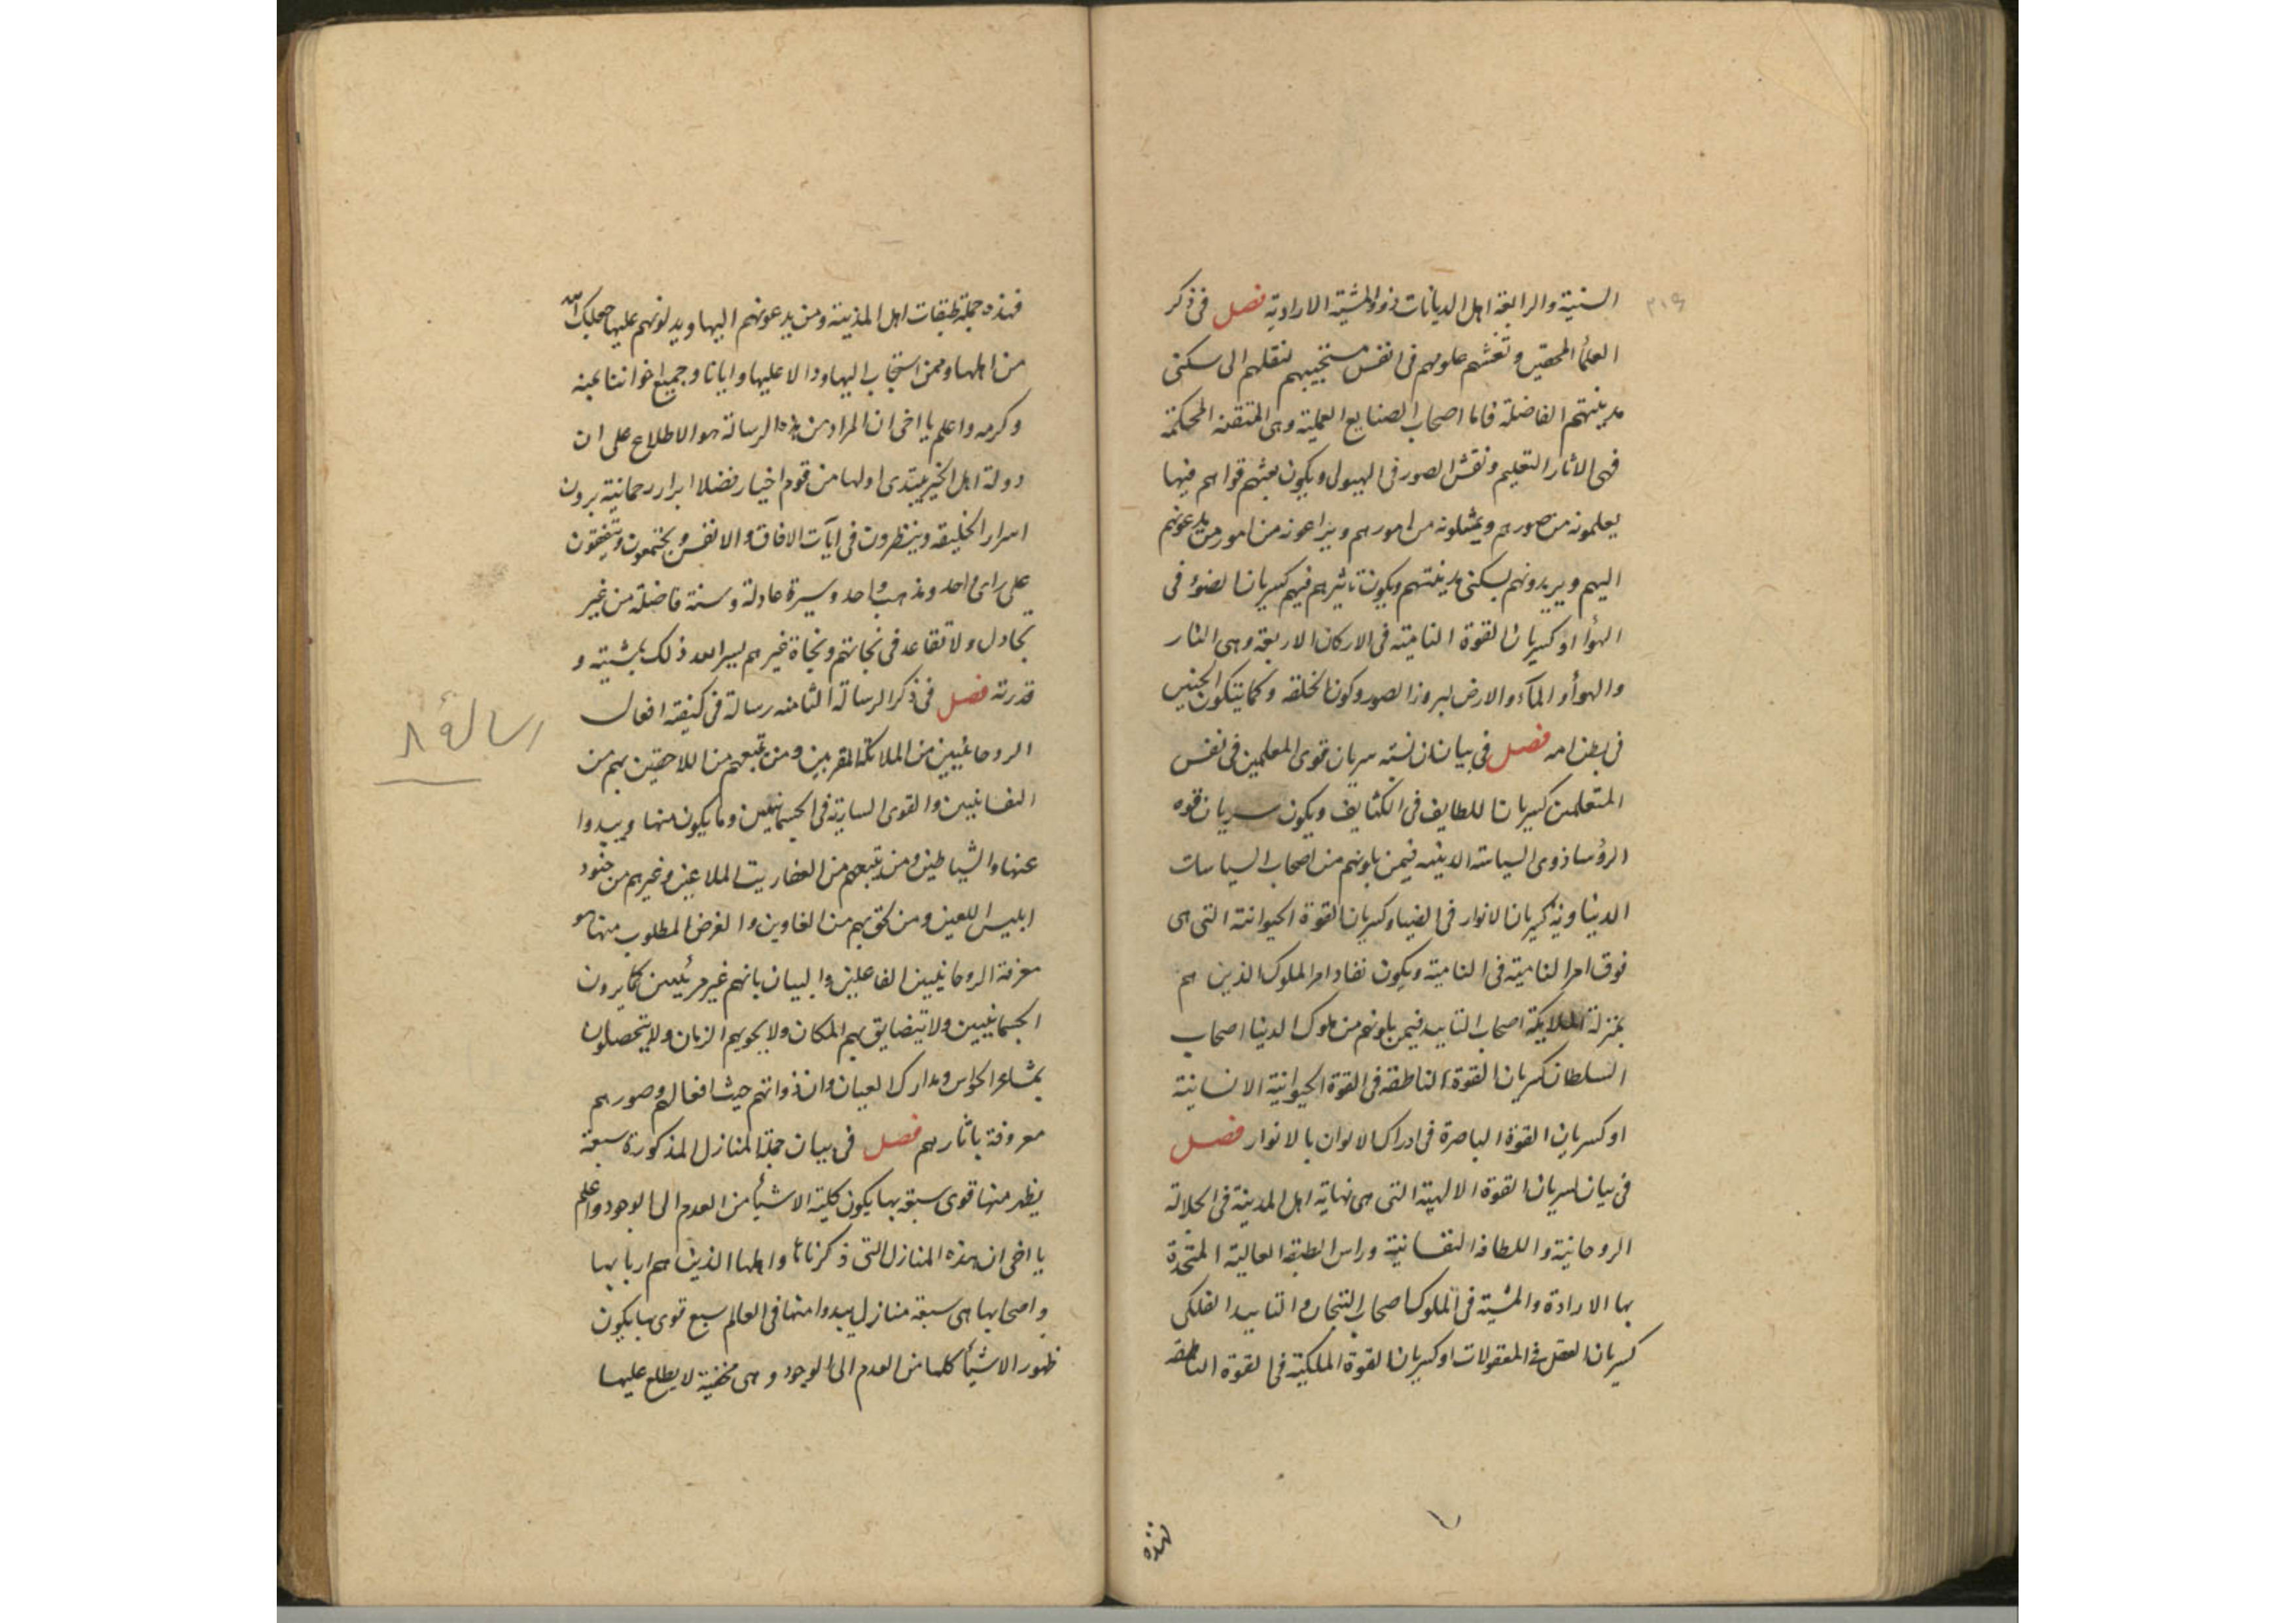 السنية والرابعة اهل الديانات ذووالمشية الارادية فصل فى ذكر
العلمأ المحقين و علومهم فى انفس مستجيبيهم لنقلهم الى سكنى
مدينتهم الفاضلة فاما اصحاب الصنايع العملية وهى المتقنة المحكمة
فهى الاثار التعليم ونقش الصور فى الهيولى ويكون بعثهم قواهم فيها
يعلمونه من صورهم ويمثلونه من امورهم ويراعونه من امور من يدعونهم
اليهم ويريدونهم بسكنى مدينتهم ويكون تاثيرهم فيهم كسريان الضوء فى
الهوأ او كسريان القوة النامية فى الاركان الاربعة وهى النار
والهوأ والمآء والارض لبروز الصور وكون الخلقة وكما يتكون الجنين
فى بطن امه فصل فى بيان ان نسبة سريان قوى المعلمين فى نفس
المتعلمين كسريان اللطايف فى الكثايف ويكون سريان قوه
الرؤسا ذوى السياسة الدينيه فيمن يلونهم من اصحاب السياسات
الدنياويه كسريان الانوار فى الضيا وكسريان القوة الحيوانية التى هى
فوق امر النامية فى النامية ويكون نفاد امر الملوك الذين هم
بمنزلة الملايكة اصحاب التاييد فيمن يلونهم من ملوك الدنيا اصحاب
السلطان كسريان القوة الناطقه فى القوة الحيوانية الانسانية
او كسريان القوة الباصرة فى ادراك الالوان بالانوار فصل
فى بيان سريان القوة الالهية التى هى نهاية اهل المدينة فى الجلالة
الروحانية واللطافه النفسانية وراس الطبقة العالية المتحدة
بها الارادة والمشية فى الملوك اصحاب التيجان والتاييد الفلكى
كسريان العقل فى المعقولات او كسريان القوة الملكية فى القوة الناطقه
فهذه
فهذه جملة طبقات اهل المدينة ومن يدعونهم اليها ويدلونهم عليها جعلك الله
من اهلها وممن استجاب اليها ودالا عليها وايانا وجميع اخواننا بمنه
وكرمه واعلم يا اخى ان المراد من هذه الرسالة هو الاطلاع على ان
دولة اهل الخير يبتدى اولها من قوم اخيار فضلا ابرار رحمانية يرون
اسرار الخليقه وينظرون فى ايآت الافاق والانفس ويجتمعون ويتفقون
على راى واحد ومذهب واحد وسيرة عادلة وسنة فاضلة من غير
تجادل ولا تقاعد فى نجاتهم ونجاة غيرهم يسر الله ذلك بمشيته و
قدرته فصل فى ذكر الرسالة الثامنه رسالة فى كيفية افعال
الروحانيين من الملائكة المقربين ومن تبعهم من اللاحقين بهم من
النفسانيين والقوى السارية فى الجسمانيين وما يكون منها ويبدوا
عنها والشياطين ومن يتبعهم من العفاريت الملاعين وغيرهم من جنود
ابليس اللعين ومن لحق بهم من الغاوين والغرض المطلوب منها هو
معرفة الروحانيين الفاعلين والبيان بانهم غير مرئيين كما يرون
الجسمانيين ولا يتضايق بهم المكان ولا يحويهم الزمان ولا يتحصلون
بمشاعر الحواس ومدارك العيان وان ذواتهم حيث افعالهم وصورهم
معروفة باثارهم فصل فى بيان جملة المنازل المذكورة سبعة
يظهر منها قوى سبعة بها يكون كلية الاشيأ من العدم الى الوجود واعلم
يا اخى ان هذه المنازل التى ذكرناها واهلها الذين هم اربابها
واصحابها هى سبعة منازل يبدوا منها فى العالم سبع قوى بها يكون
ظهور الاشيأ كلها من العدم الى الوجود وهى مخفية لا يطلع عليها
رسالة ٨